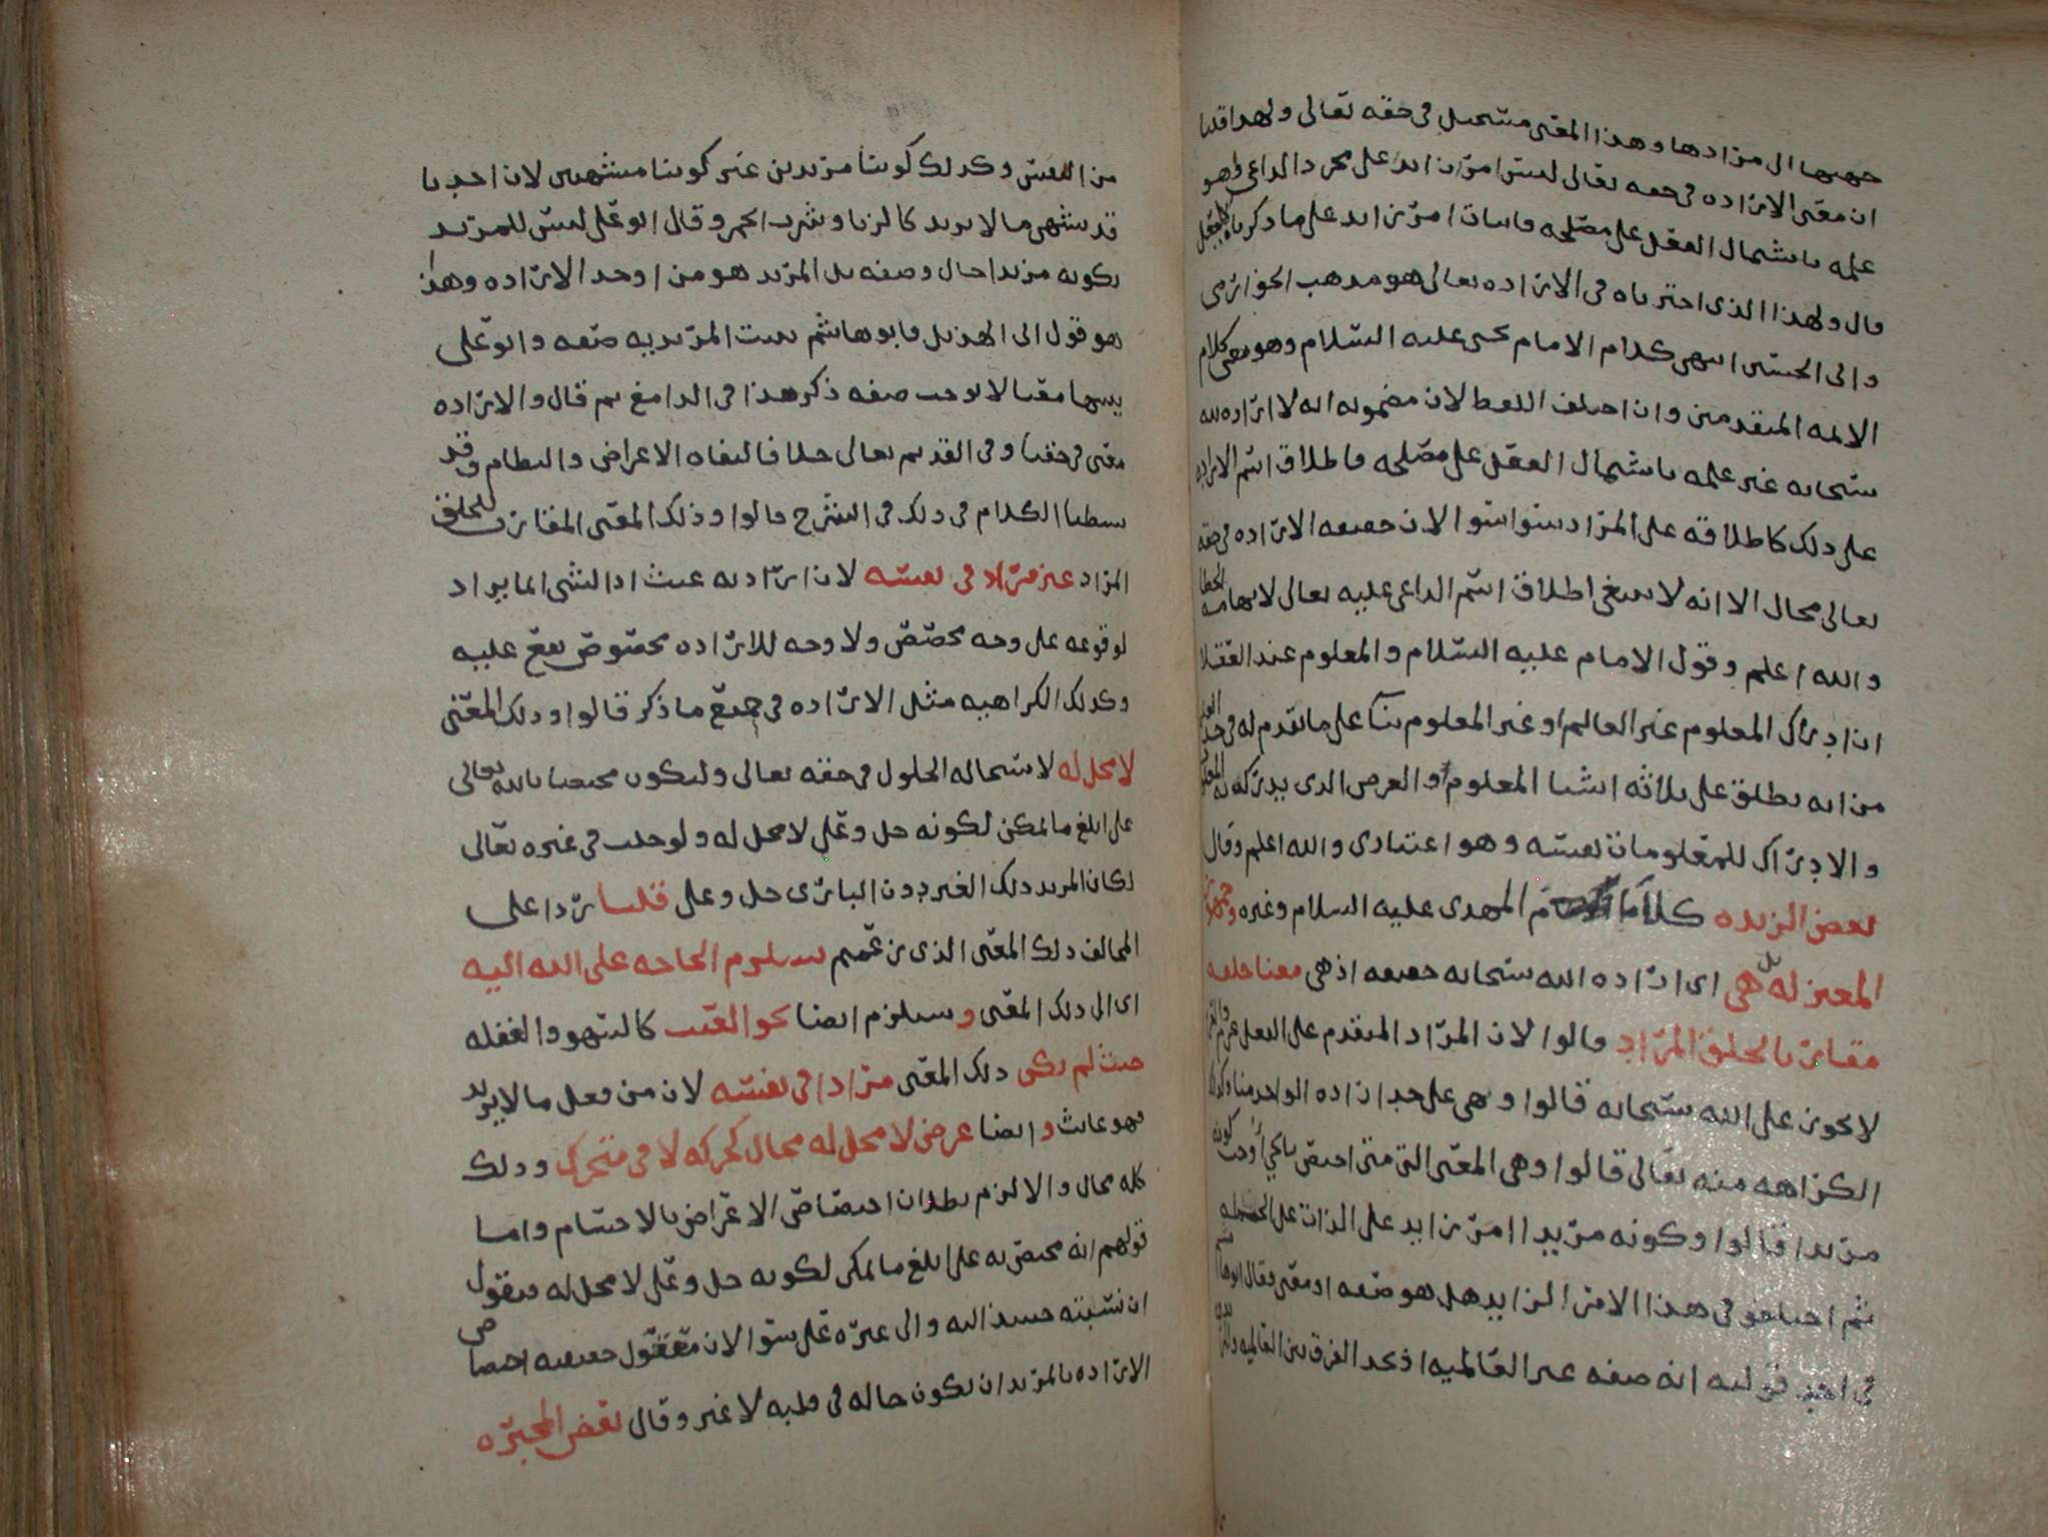 جهتها الى مرادها وهذا المعنى مستحيل في حقه تعالى ولهذا قلنا
ان معنى الارادة في حقه تعالى ليس امرا زايدا على مجرد الداعي وهو
علمه باشتمال الفعل على مصلحة فاثبات امر زايد على ما ذكرناه لا يعقل
قال ولهذا الذي اخترناه في الارادة تعالى هو مذهب الخوارزمي
وابي الحسين انتهى كلام الامام يحيى عليه السلام وهو معنى كلام
الائمة المتقدمين وان اختلف اللفظ لان مضمونه انه لا ارادة لله
سبحانه غير علمه باشتمال الفعل على مصلحة فاطلاق اسم الارادة
على ذلك كاطلاقه على المراد سوا سوا لان حقيقة الارادة في حقه
تعالى محال الا انه لا ينبغي اطلاق اسم الداعي عليه تعالى لايهامه الخطا
والله اعلم وقول الامام عليه السلام والمعلوم عند العقلا
ان ادراك المعلوم غير العالم او غير المعلوم بنا على ما تقدم له في حد العلم
من انه يطلق على ثلاثة اشيا المعلوم والعرض الذي يدرك به المعلوم
والادراك للمعلومات نفسه وهو اعتمادي والله اعلم وقال
بعض الزيدية كالامام المهدي عليه السلام وغيره وجمهور
المعتزلة بل هي اى ارادة الله سبحانه حقيقة اذ هي معنا خلقه
مقارن بالخلق المراد قالوا لان المراد المتقدم على الفعل عزم والعزم
لا يجوز على الله سبحانه قالوا وهي على حد ارادة الواحد منا وكذلك
الكراهه منه تعالى قالوا وهي المعنى التي متى اختص بالحي اوجب كونه
مريدا قالوا وكونه مريدا امر زايد على الذات على الجملة
ثم اختلفو في هذا الامر الزايد هل هو صفه او معنى فقال ابو هاشم
في احد قوليه انه صفه غير العالمية اذ نجد الفرق بين العالمية والمريدية
من النفس وكذلك كوننا مريدين غير كوننا مشتهين لان احدنا
قد يشتهي ما لا يريد كالزنا وشرب الخمر وقال ابو علي ليس للمريد
بكونه مريدا حال وصفه بل المريد هو من اوجد الارادة وهذا
هو قول ابي الهذيل فابو هاشم يثبت المريدية صفه وابو علي
يثبتها معنا لا يوجب صفه ذكر هذا في الدامغ ثم قال والارادة
معنى في حقنا وفي القديم تعالى خلافا لنفاة الاعراض والنظام وقد
بسطنا الكلام في ذلك في الشرح قالوا وذلك المعنى المقارن للخلق
المراد غير مراد في نفسه لان ارادته عبث اذ الشي انما يراد
لوقوعه على وجه مخصص ولا وجه للارادة مخصوص يقع عليه
وكذلك الكراهيه مثل الارادة في جميع ما ذكر قالوا وذلك المعنى
لا محل له لاستحالة الحلول في حقه تعالى وليكون مختصا بالله تعالى
على ابلغ ما يمكن لكونه جل وعلى لا محل له ولو حلت في غيره تعالى
لكان المريد ذلك الغير دون الباري جل وعلى قلنا ردا على
المخالف ذلك المعنى الذي زعمتم يستلزم الحاجه على الله اليه
اى الى ذلك المعنى ويستلزم ايضا نحو العبث كالسهو والغفله
حيث لم يكن ذلك المعنى مرادا في نفسه لان من فعل ما لا يريد
فهو عابث وايضا عرض لا محل له محال كحركة لا في متحرك وذلك
كله محال والا لزم بطلان اختصاص الاعراض بالاجسام واما
قولهم انه مختص به على ابلغ ما يمكن لكونه جل وعلى لا محل له فنقول
ان نسبته حينئذ اليه والى غيره على سوا لان معقول حقيقة اختصاص
الارادة بالمريد ان يكون حاله في قلبه لا غير وقال بعض المجبرة